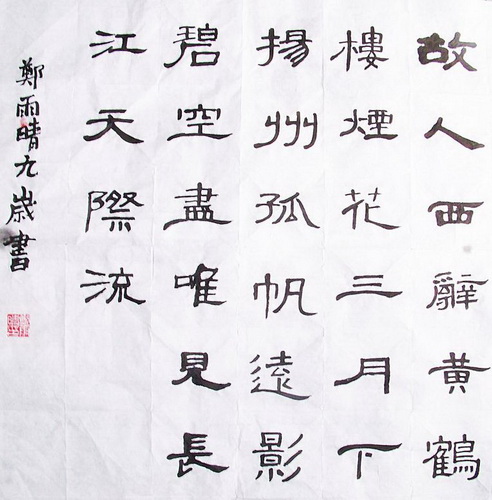 故人西辭黃鶴
樓煙花三月下
揚州孤帆遠影
碧空盡唯見長
江天際流
鄭雨晴九歲書